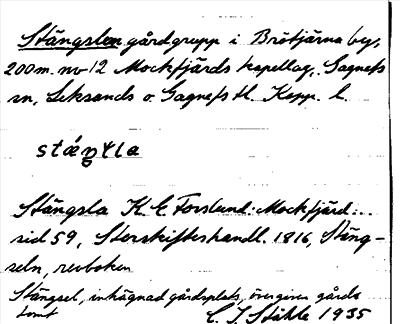 Stängslen gårdgrupp i Brötjärna by,
200 m. nv 12 Mockfjärds kapellag, Gagnefs
sn, Leksands o. Gagnefs tl. Kopp. l.
Stängsla K. E. Forslund: Mockfjärd:
sid 59, Storskifteshandl. 1816, Stäng-
seln, revboken
Stängsel, inhägnad gårdsplats, övergiven gårds
tomt C. I. Ståhle 1935